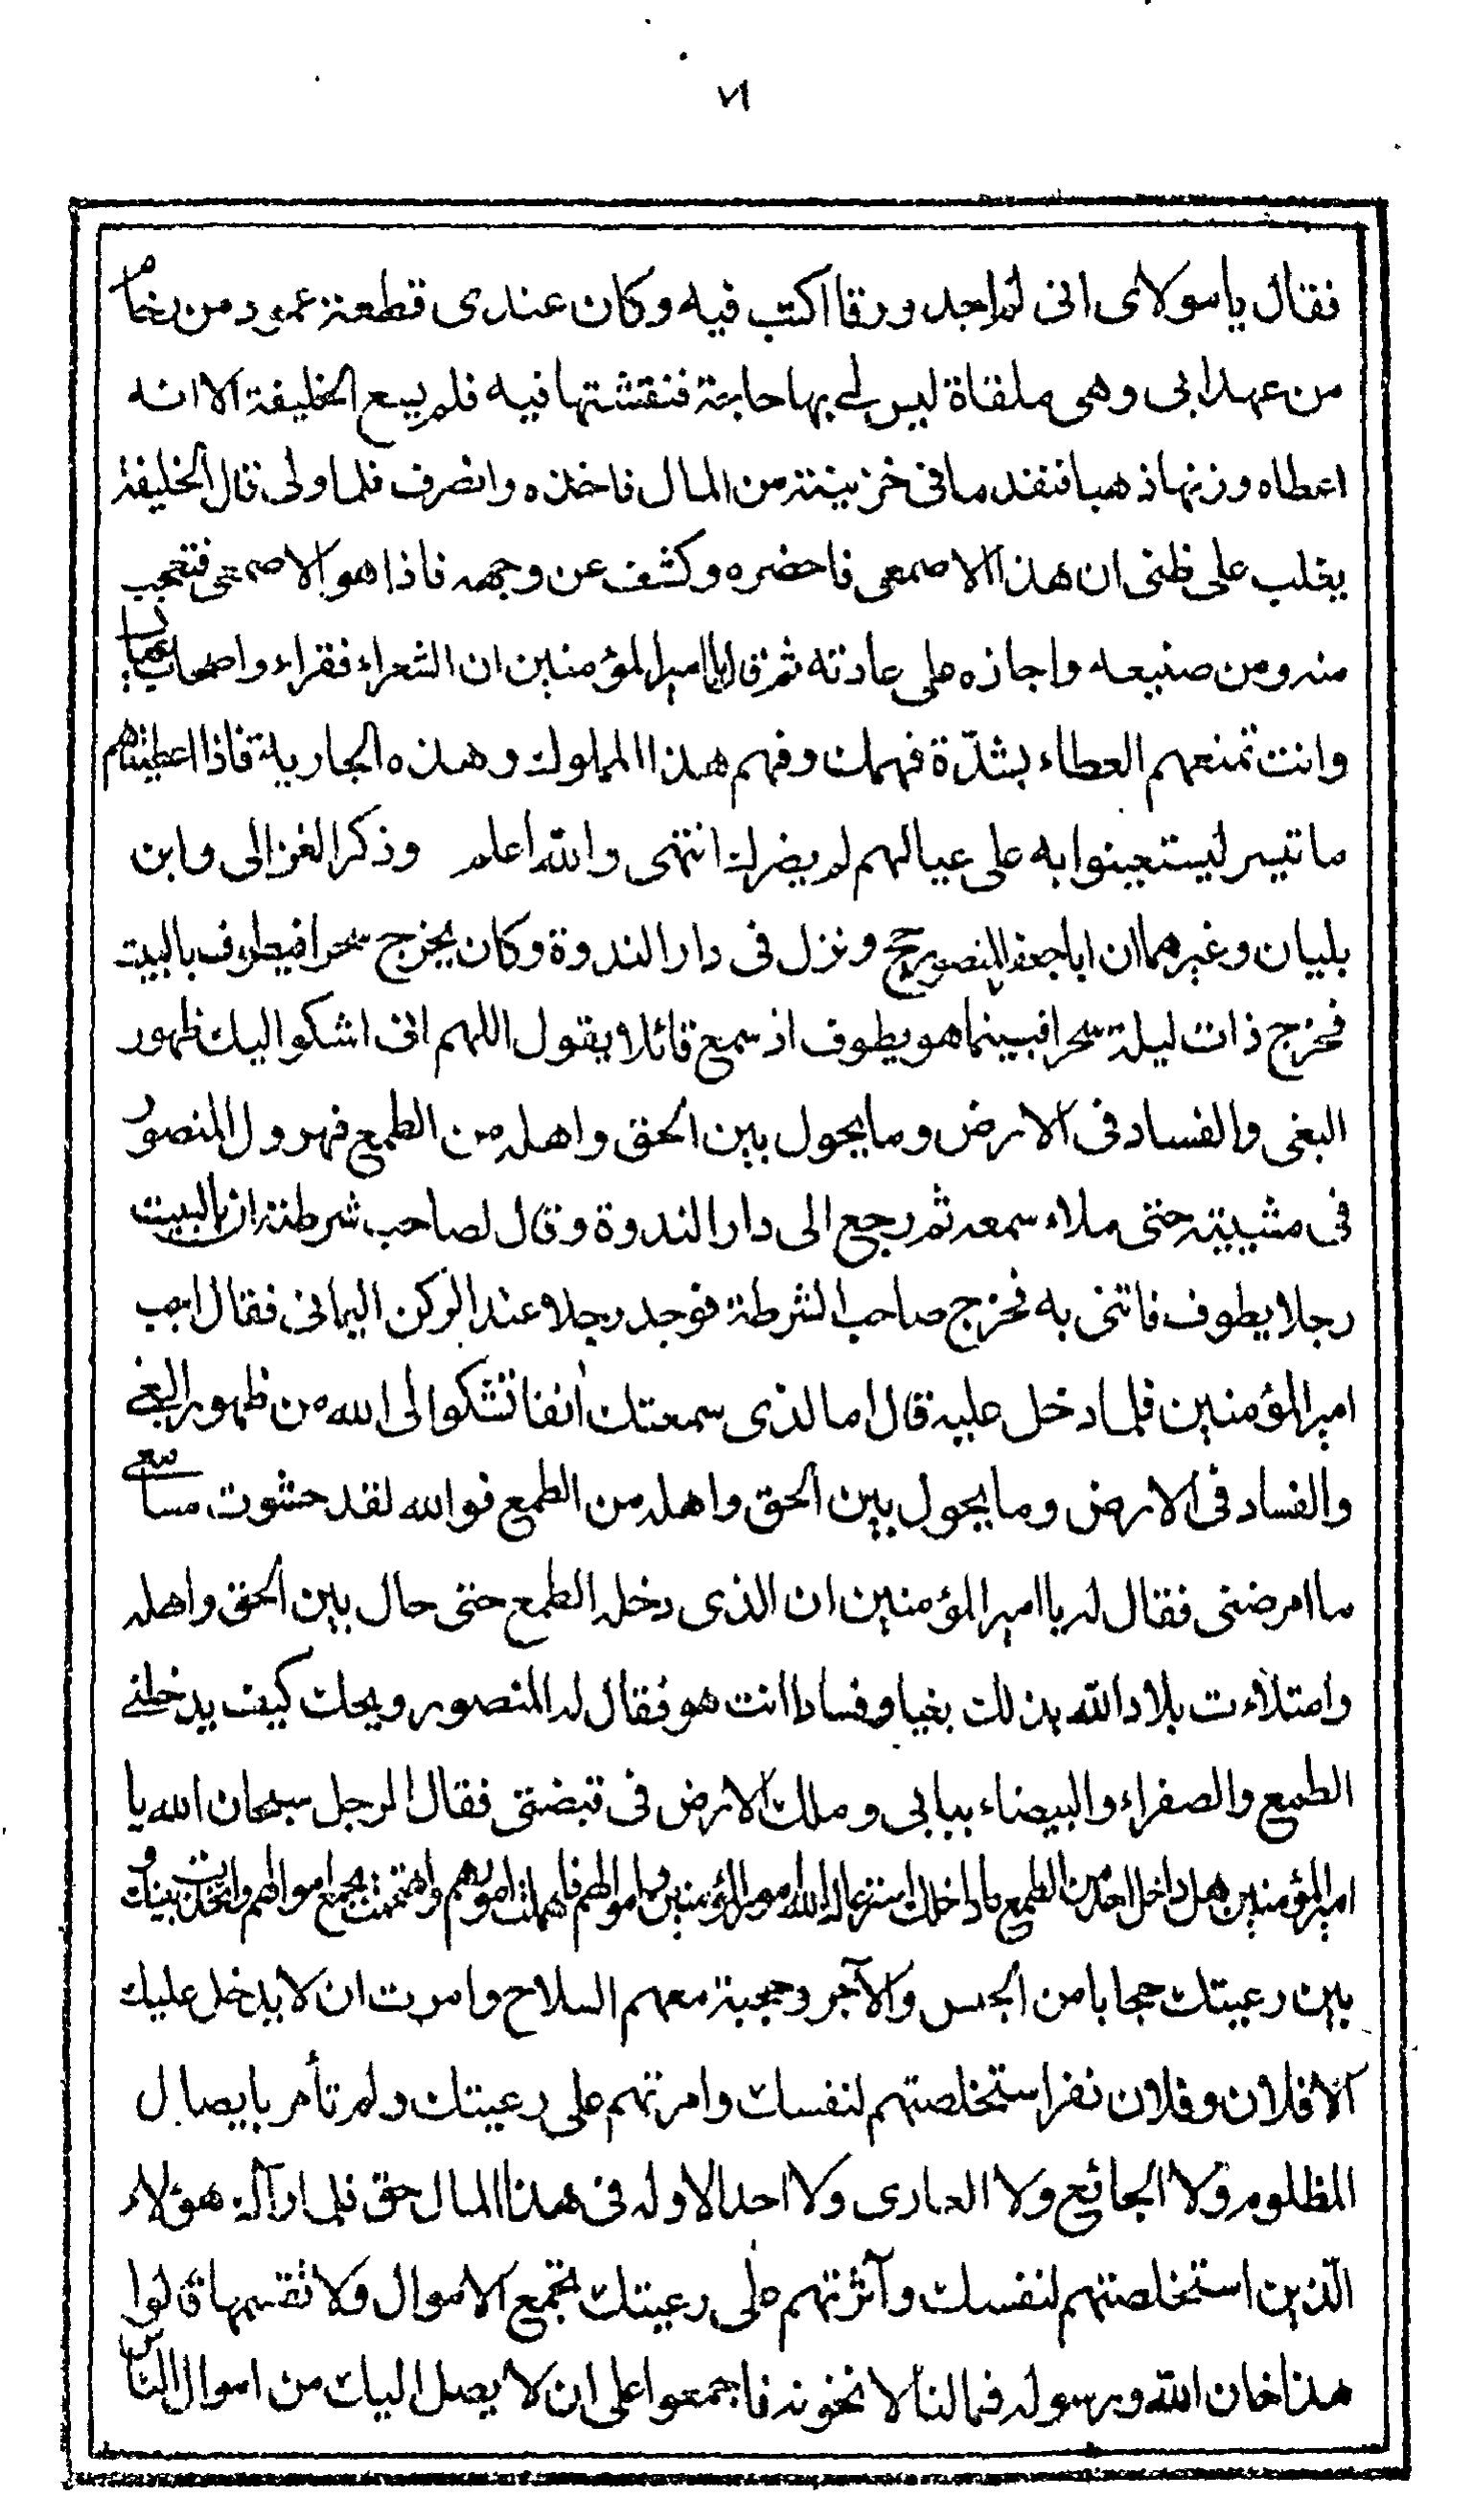 ٧١
فقال يا مولاى انى لم اجد ورقا اكتب فيه وكان عندى قطعة عمود من رخام
من عهد ابى وهى ملقاة ليس لى بها حاجة فنقشتها فيه فلم يسع الخليفة الا انه
اعطاه وزنها ذهبا فنفد ما فى خزينته من المال فاخذه وانصرف فلما ولى قال الخليفة
يغلب على ظنى ان هذا الاصمعى فاحضره وكشف عن وجهه فاذا هو الاصمعى فتعجب
منه ومن صنيعه واجازه على عادته ثم قال يا امير المؤمنين ان الشعراء فقراء واصحاب
وانت تمنعهم العطاء بشدة فهمك وفهم هذا المملوك وهذه الجارية فاذا اعطيتهم
ما تيسر ليستعينوا به على عيالهم لم يضرك انتهى والله اعلم وذكر الغزالى وابن
بليان وغيرهما ان ابا جعفر المنصور حج ونزل فى دار الندوة وكان يخرج سحرا فيطوف بالبيت
فخرج ذات ليلة سحرا فبينما هو يطوف اذ سمع قائلا يقول اللهم انى اشكو اليك ظهور
البغى والفساد فى الارض وما يحول بين الحق واهله من الطمع فهرول المنصور
فى مشيته حتى ملاء سمعه ثم رجع الى دار الندوة وقال لصاحب شرطته ان بالبيت
رجلا يطوف فاتنى به فخرج صاحب الشرطة فوجد رجلا عند الركن اليمانى فقال اجب
امير المؤمنين فلما دخل عليه قال ما الذى سمعتك انفا تشكو الى الله من ظهور البغى
والفساد فى الارض وما يحول بين الحق واهله من الطمع فوالله لقد حشوت مسامعى
ما امرضنى فقال له يا امير المؤمنين ان الذى دخله الطمع حتى حال بين الحق واهله
وامتلاءت بلاد الله بذلك بغيا وفسادا انت هو فقال له المنصور ويحك كيف يدخلنى
الطمع والصفراء والبيضاء ببابى وملك الارض فى قبضتى فقال الرجل سبحان الله يا
امير المؤمنين هل داخل احد من الطمع ما داخلك استرعاك الله امور المؤمنين واموالهم فاهملت امورهم واهتممت بجمع اموالهم واتخذت بينك و
بين رعيتك حجابا من الجص والآجر وحجبة معهم السلاح وامرت ان لا يدخل عليك
الا فلان وفلان نفر استخلصتهم لنفسك وامرتهم على رعيتك ولم تأمر بايصال
المظلوم ولا الجائع ولا العارى ولا احد الا وله فى هذا المال حق فلما رآك هؤلاء
الذين استخلصتهم لنفسك وآثرتهم على رعيتك تجمع الاموال ولا تقسمها قالوا
هذا خان الله ورسوله فما لنا لا نخونه فاجمعوا على ان لا يصل اليك من اموال الناس